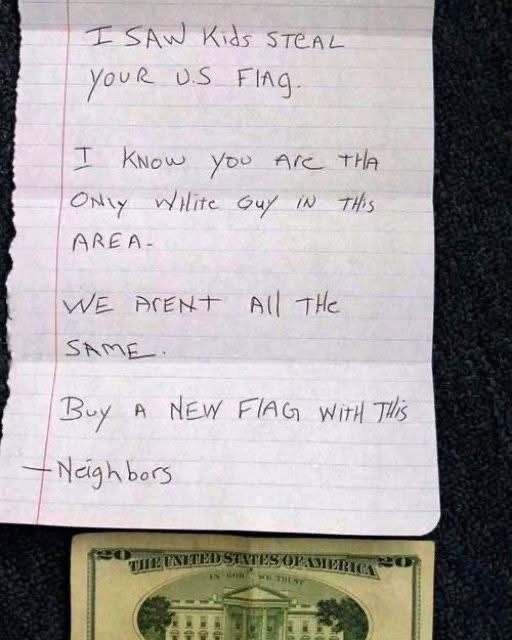 I SAW Kids STEAL
YOUR U.S FlAG.
I KNOW YOU ArE THA
ONly WHite GUY IN THis
AREA-
WE ArENT All THe
SAME.
Buy A NEW FlAG WITH THis
-Neighbors
20 THE UNITED STATES OF AMERICA 20
IN GOD WE TRUST